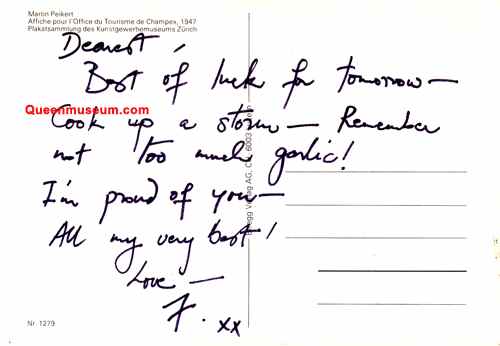 Martin Peikert
Affiche pour l'Office du Tourisme de Champex, 1947
Plakatsammlung des Kunstgewerbemuseums Zürich
Dearest,
Best of luck for tomorrow —
Queenmuseum.com
Cook up a storm — Remember
not too much garlic!
I'm proud of you —
All my very best!
Love —
F. xx
Verlag AG, CH 6003
Nr. 1279